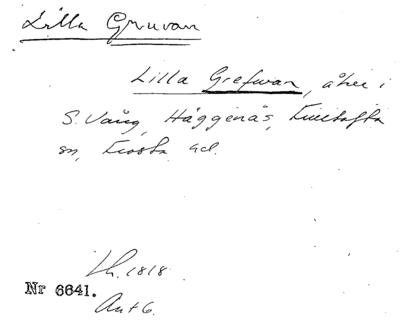 Lilla Gruvan
Lilla Grefwan, åker i
S. Vång, Häggenäs, Fulltofta
sn, Frosta hd.
Lh. 1818
Nr 6641.
Ant 6.